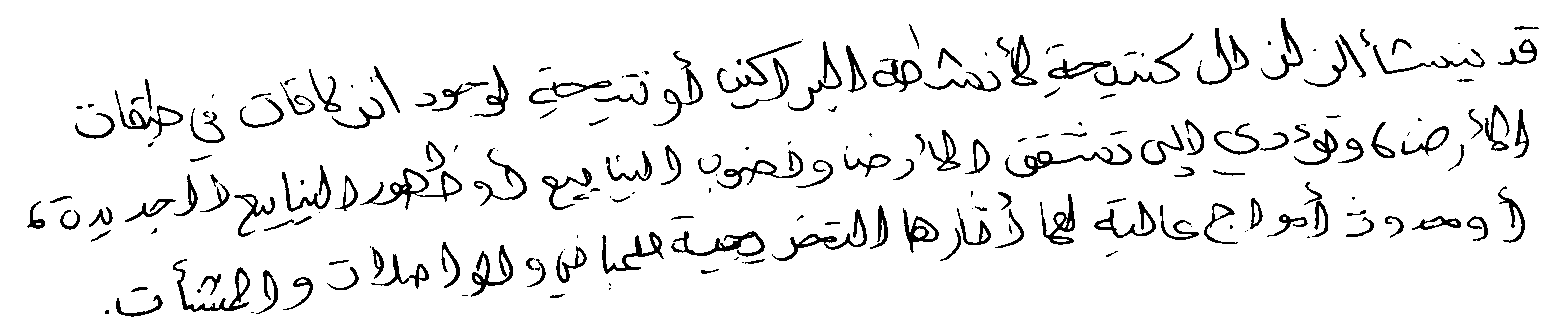 قد ينشأ الزلزال كنتيجة لأنشطة البراكين أو نتيجة لوجود انزلاقات في طبقات
الأرض، وتؤدي إلى تشقق الأرض ونضوب الينابيع أو ظهور الينابيع الجديدة،
أو حدوث أمواج عالية لها أثارها التخريبية للمباني والمواصلات والمنشأت.